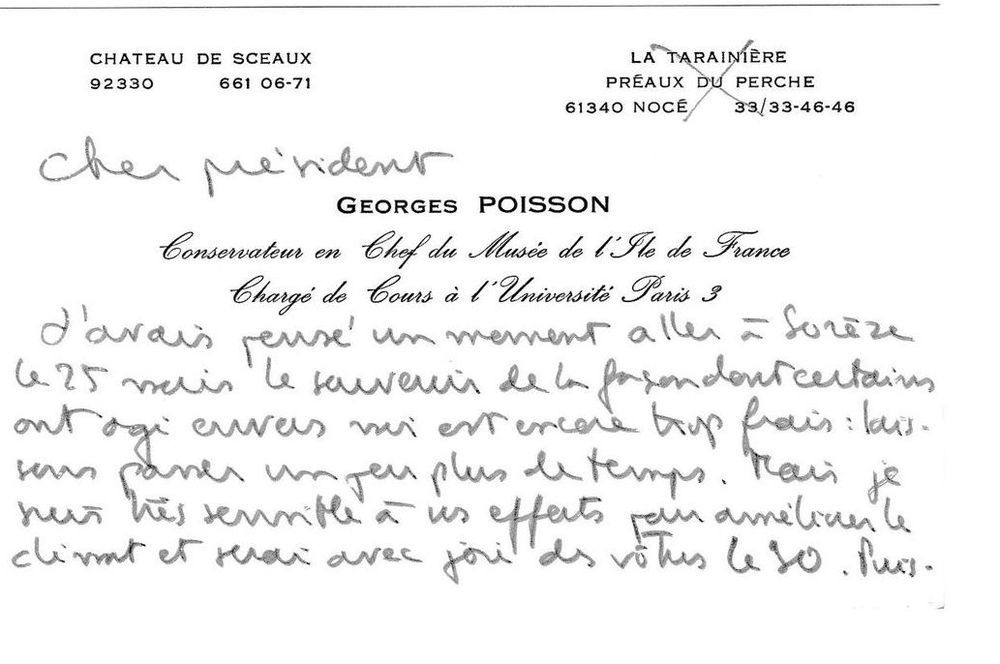 CHATEAU DE SCEAUX
92330 661 06-71
LA TARAINIÈRE
PRÉAUX DU PERCHE
61340 NOCÉ 33/33-46-46
Cher président
GEORGES POISSON
Conservateur en Chef du Musée de l'Ile de France
Chargé de Cours à l'Université Paris 3
J'avais pensé un moment aller à Sorèze
le 25 mais le souvenir de la façon dont certains
ont agi envers moi est encore trop frais : lais-
sons passer un peu plus de temps. Mais je
suis très sensible à vos efforts pour améliorer le
climat et serai avec joie des vôtres le 30. Puis-